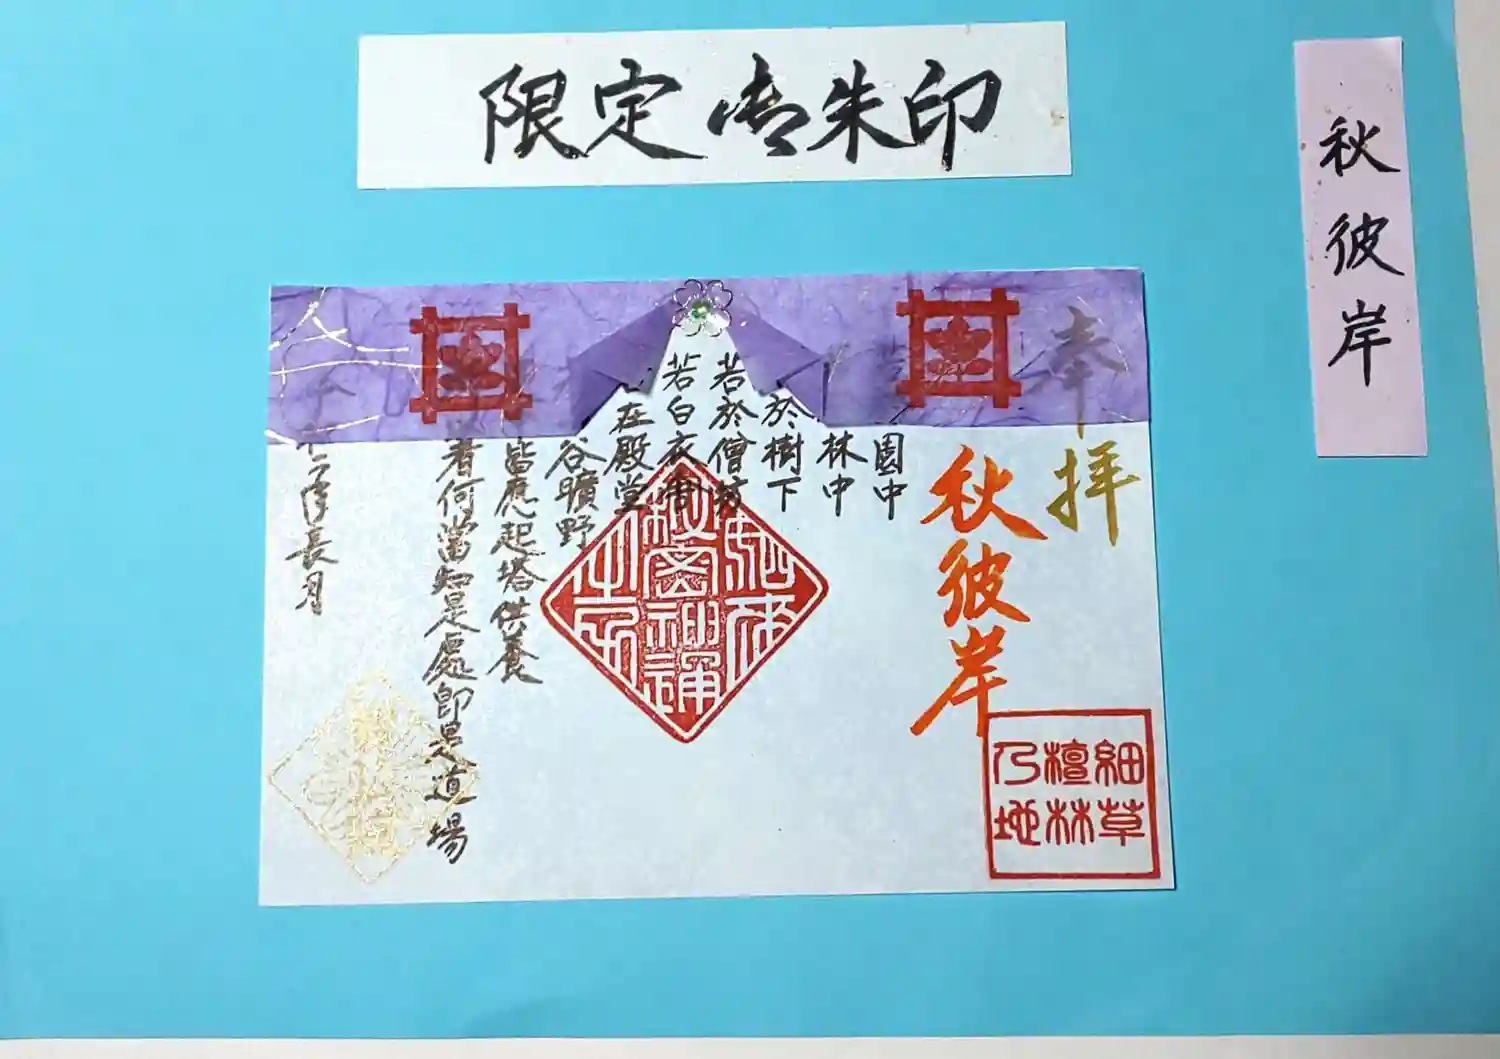 限定御朱印
秋彼岸
奉拝
秋彼岸
園中
林中
於樹下
若於僧坊
若白衣舎
在殿堂
谷曠野
皆應起塔供養
者何當知是處即是道場
年長月
如来
秘密神通
之力
細草
檀林
乃地